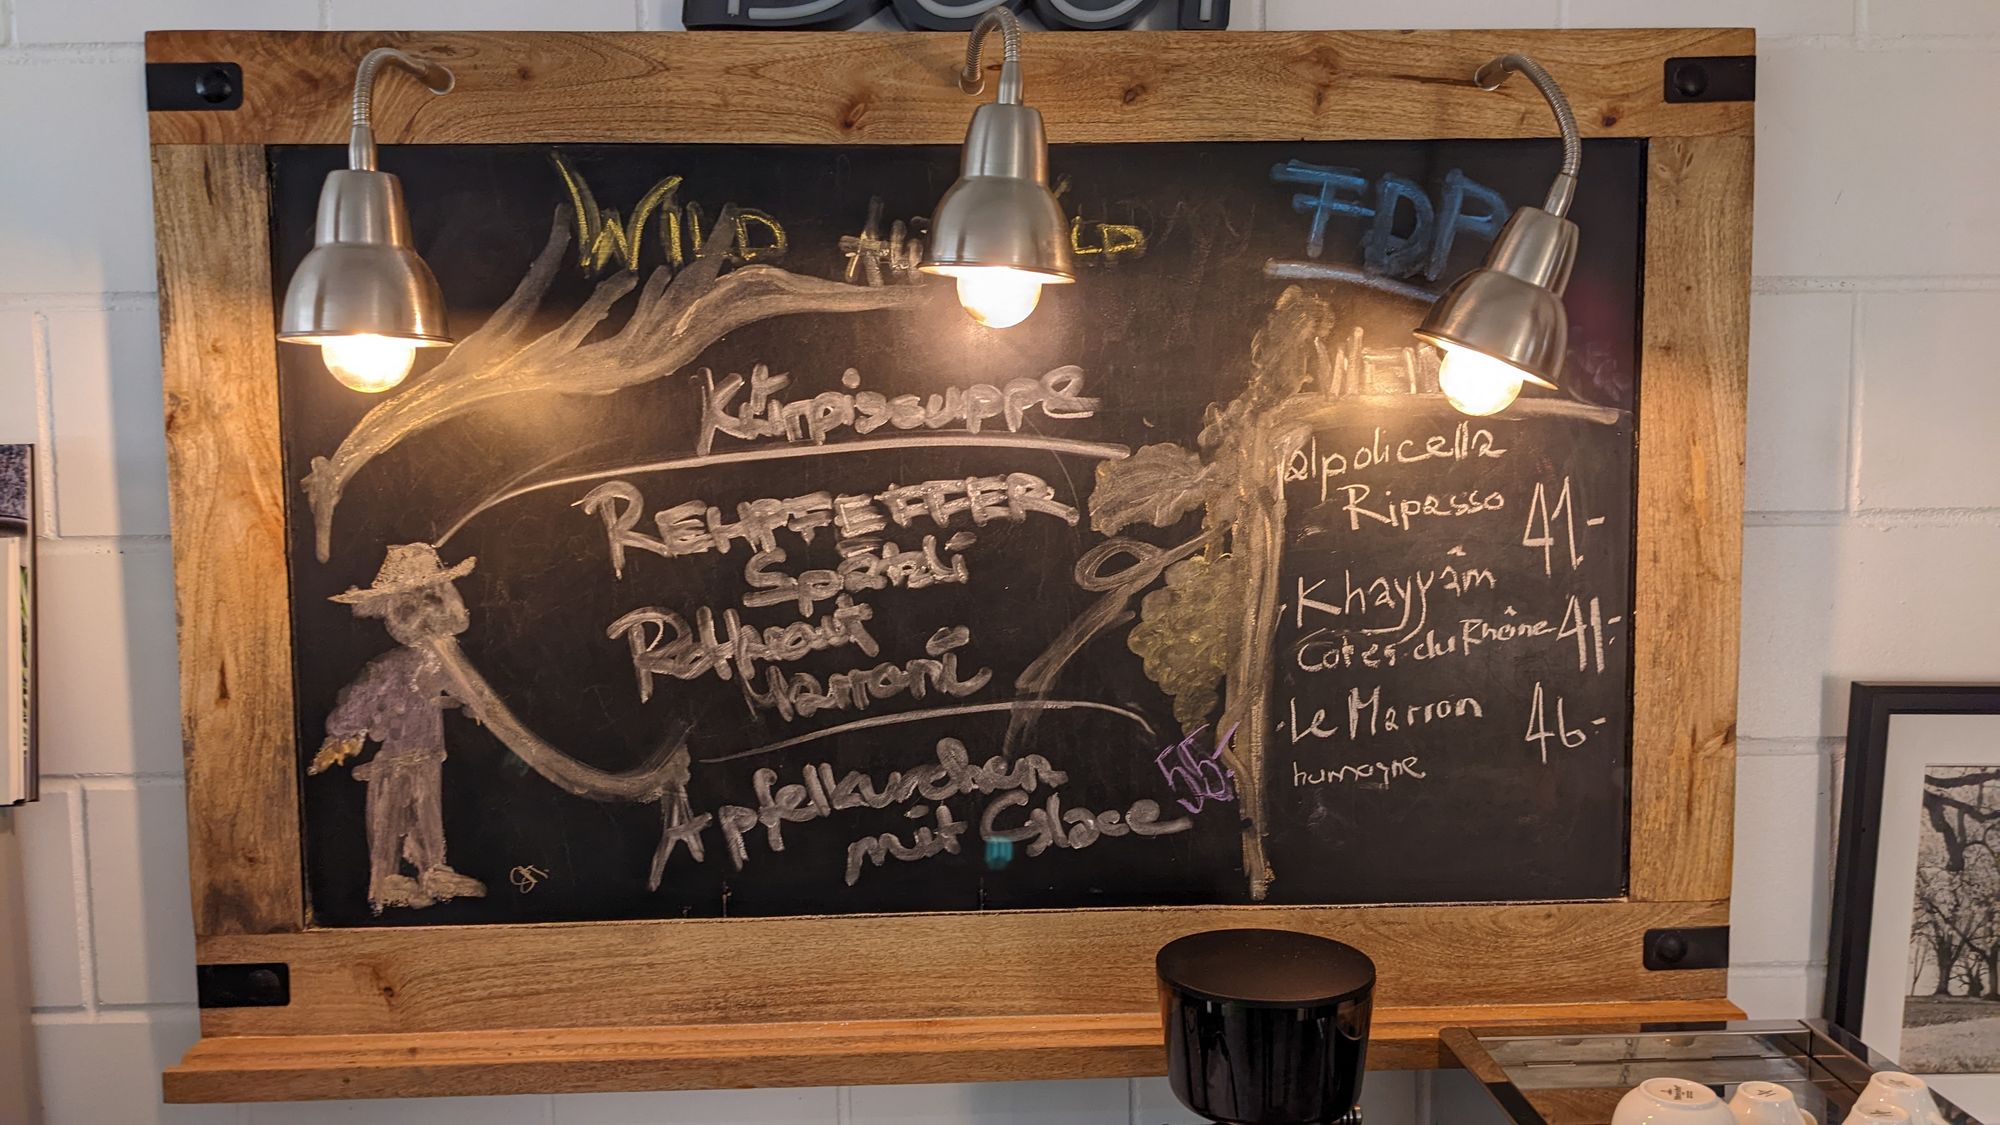 WILD
FDP
Kürpissuppe
REHPFEFFER
Spätzli
Rotkraut
Marroni
Apfelkuchen
mit Glace
55.-
Valpolicella
Ripasso 41.-
Khayyâm
Côtes du Rhône 41.-
Le Marron 46.-
humagne